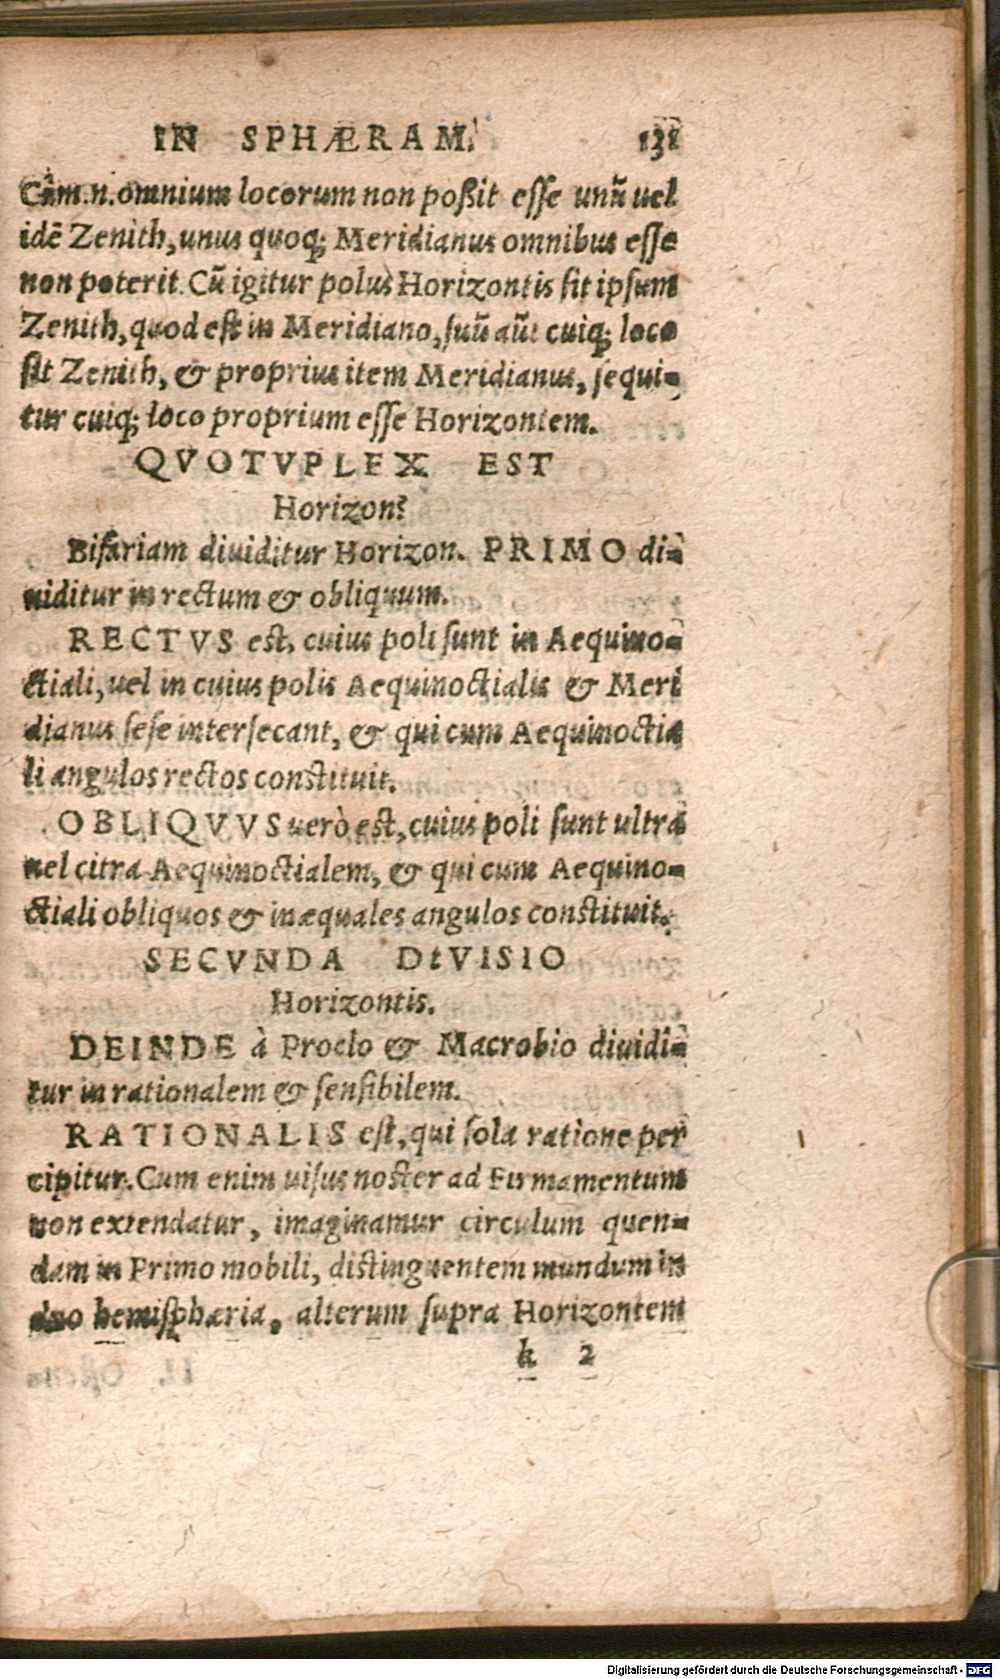 IN SPHÆRAM. 131
Cùm.n.omnium locorum non poßit esse unũ uel
idẽ Zenith, unus quoq; Meridianus omnibus esse
non poterit. Cũ igitur polus Horizontis sit ipsum
Zenith, quod est in Meridiano, suũ aũt cuiq; loco
sit Zenith, & proprius item Meridianus, sequi-
tur cuiq; loco proprium esse Horizontem.
QVOTVPLEX EST
Horizon?
Bifariam diuiditur Horizon. PRIMO di-
uiditur in rectum & obliquum.
RECTVS est, cuius poli sunt in Aequino-
ctiali, uel in cuius polis Aequinoctialis & Meri
dianus sese intersecant, & qui cum Aequinoctia
li angulos rectos constituit.
OBLIQVVS uerò est, cuius poli sunt ultra
uel citra Aequinoctialem, & qui cum Aequino-
ctiali obliquos & inæquales angulos constituit.
SECVNDA DIVISIO
Horizontis.
DEINDE à Proclo & Macrobio diuidi-
tur in rationalem & sensibilem.
RATIONALIS est, qui sola ratione per
cipitur. Cum enim uisus noster ad Firmamentum
non extendatur, imaginamur circulum quen-
dam in Primo mobili, distinguentem mundum in
duo hemisphæria, alterum supra Horizontem
k 2
Digitalisierung gefördert durch die Deutsche Forschungsgemeinschaft - DFG